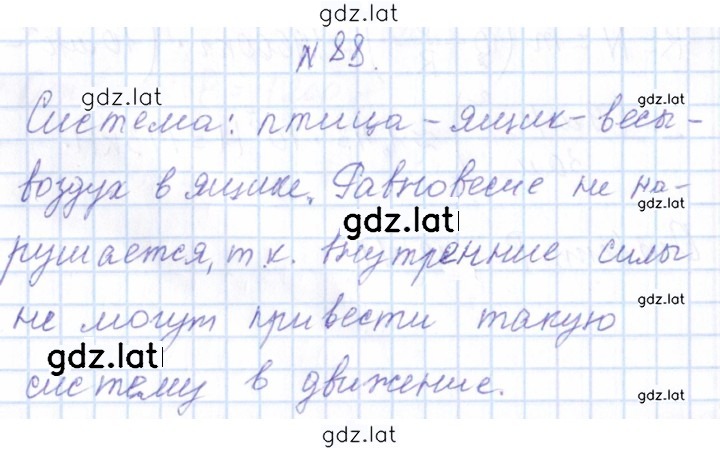 gdz.lat
№ 88.
gdz.lat gdz.lat
Система: птица - ящик - весы -
воздух в ящике. Равновесие не на-
gdz.lat gdz.lat
рушается, т.к. внутренние силы
gdz.lat
не могут привести такую
gdz.lat
систему в движение.
gdz.lat
gdz.lat